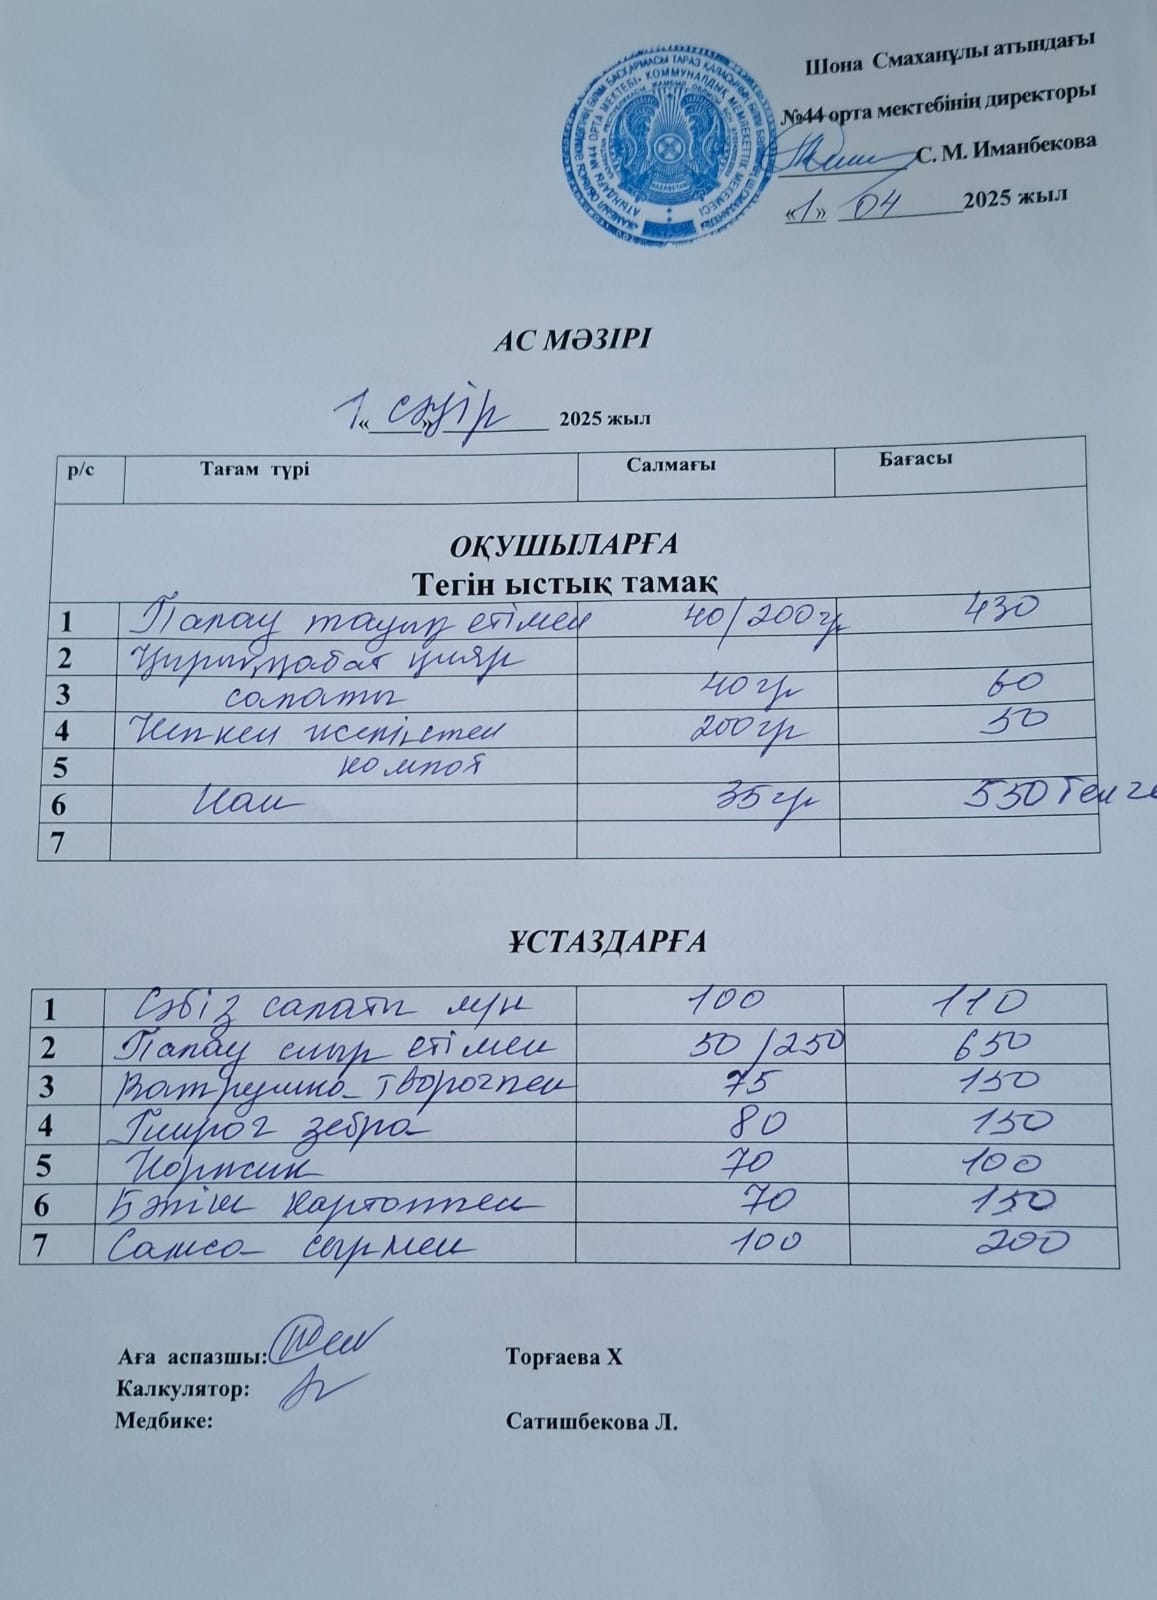 Шона Смаханұлы атындағы
№44 орта мектебінің директоры
С. М. Иманбекова
«1» 04 2025 жыл
АС МӘЗІРІ
1 « » сәуір 2025 жыл
р/с Тағам түрі Салмағы Бағасы
ОҚУШЫЛАРҒА
Тегін ыстық тамақ
1 Палау тауық етімен 40/200гр 430
2 қырыққабат қияр
3 салаты 40гр 60
4 Кепкен жемістен 200гр 50
5 компот
6 Нан 35гр 550 Тенге
7
ҰСТАЗДАРҒА
1 Сәбіз салаты 100 110
2 Палау сиыр етімен 50/250 650
3 Ватрушка творогпен 75 150
4 Пирог зебра 80 150
5 Коржик 70 100
6 Бәліш картоппен 70 150
7 Самса сырмен 100 200
Аға аспазшы: Торғаева Х
Калкулятор:
Медбике: Сатишбекова Л.